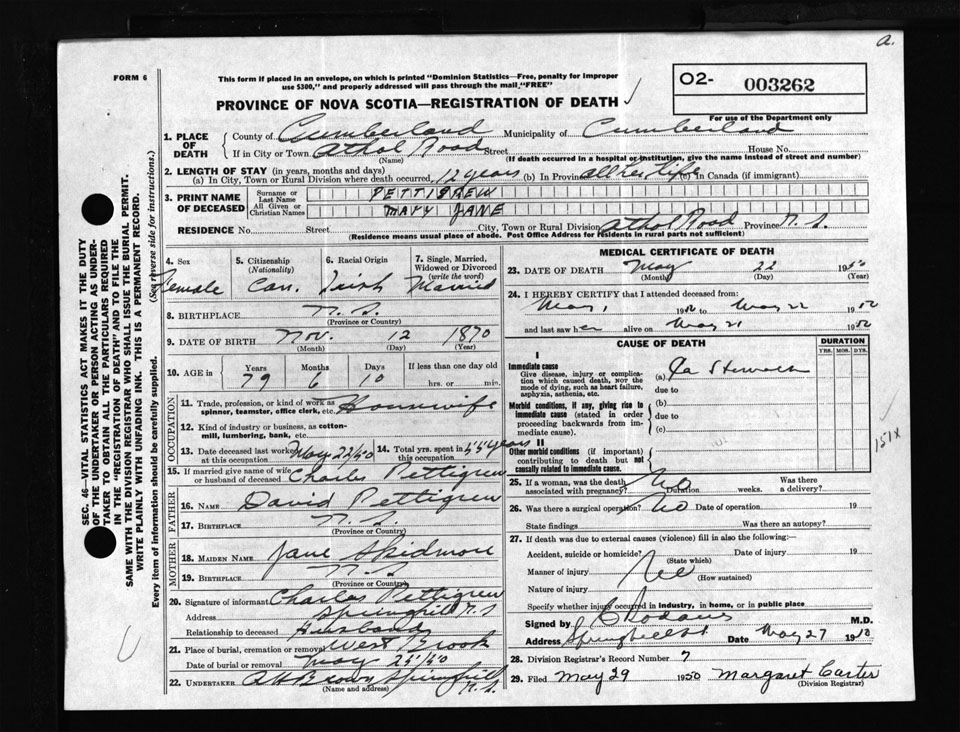 a.
FORM 6
This form if placed in an envelope, on which is printed "Dominion Statistics—Free, penalty for improper
use $300," and properly addressed will pass through the mail "FREE"
O2- 003262
For use of the Department only
PROVINCE OF NOVA SCOTIA—REGISTRATION OF DEATH ✓
SEC. 46—VITAL STATISTICS ACT MAKES IT THE DUTY
OF THE UNDERTAKER OR PERSON ACTING AS UNDER-
TAKER TO OBTAIN ALL THE PARTICULARS REQUIRED
IN THE "REGISTRATION OF DEATH" AND TO FILE THE
SAME WITH THE DIVISION REGISTRAR WHO SHALL ISSUE THE BURIAL PERMIT.
WRITE PLAINLY WITH UNFADING INK. THIS IS A PERMANENT RECORD.
Every item of information should be carefully supplied. (See reverse side for instructions.)
1. PLACE OF DEATH
County of Cumberland Municipality of Cumberland
If in City or Town Athol Road Street House No.
(Name) (If death occurred in a hospital or institution, give the name instead of street and number)
2. LENGTH OF STAY (in years, months and days)
(a) In City, Town or Rural Division where death occurred, 12 years (b) In Province all her life (c) In Canada (if immigrant)
3. PRINT NAME OF DECEASED
Surname or Last Name PETTIGREW
All Given or Christian Names MARY JANE
RESIDENCE No. Street City, Town or Rural Division Athol Road Province N.S.
(Residence means usual place of abode. Post Office Address for residents in rural parts not sufficient)
4. Sex 5. Citizenship (Nationality) 6. Racial Origin 7. Single, Married, Widowed or Divorced (write the word)
Female Can. Irish Married
8. BIRTHPLACE N.S.
(Province or Country)
9. DATE OF BIRTH Nov. 12 1870
(Month) (Day) (Year)
10. AGE in Years Months Days If less than one day old
79 6 10 hrs. or min.
OCCUPATION
11. Trade, profession, or kind of work as spinner, teamster, office clerk, etc. Housewife
12. Kind of industry or business, as cotton-mill, lumbering, bank, etc.
13. Date deceased last worked at this occupation May 22/50 14. Total yrs. spent in this occupation 55 years
15. If married give name of wife or husband of deceased Charles Pettigrew
FATHER
16. NAME David Pettigrew
17. BIRTHPLACE N.S.
(Province or Country)
MOTHER
18. MAIDEN NAME Jane Skidmore
19. BIRTHPLACE N.S.
(Province or Country)
20. Signature of informant Charles Pettigrew
Address Springhill N.S.
Relationship to deceased Husband
21. Place of burial, cremation or removal West Brook
Date of burial or removal May 25/50
22. UNDERTAKER A H Brown Springhill N.S.
(Name and address)
MEDICAL CERTIFICATE OF DEATH
23. DATE OF DEATH May 22 1950
(Month) (Day) (Year)
24. I HEREBY CERTIFY that I attended deceased from:
May 1 1950 to May 22 1950
and last saw her alive on May 21 1950
CAUSE OF DEATH DURATION
YRS. MOS. DYS.
I
Immediate cause
Give disease, injury or complication which caused death, nor the mode of dying, such as heart failure, asphyxia, asthenia, etc.
(a) Ca Stomach
due to
Morbid conditions, if any, giving rise to immediate cause (stated in order proceeding backwards from immediate cause).
(b)
due to
(c)
II
Other morbid conditions (if important) contributing to death but not causally related to immediate cause.
151X
25. If a woman, was the death associated with pregnancy? No Duration weeks. Was there a delivery?
26. Was there a surgical operation? No Date of operation 19
State findings Was there an autopsy?
27. If death was due to external causes (violence) fill in also the following:
Accident, suicide or homicide? Date of injury 19
(State which)
Manner of injury
(How sustained)
Nature of injury
Specify whether injury occurred in industry, in home, or in public place
Signed by M.D.
Address Springhill Date May 27 1950
28. Division Registrar's Record Number 7
29. Filed May 29 1950 Margaret Carter
(Division Registrar)